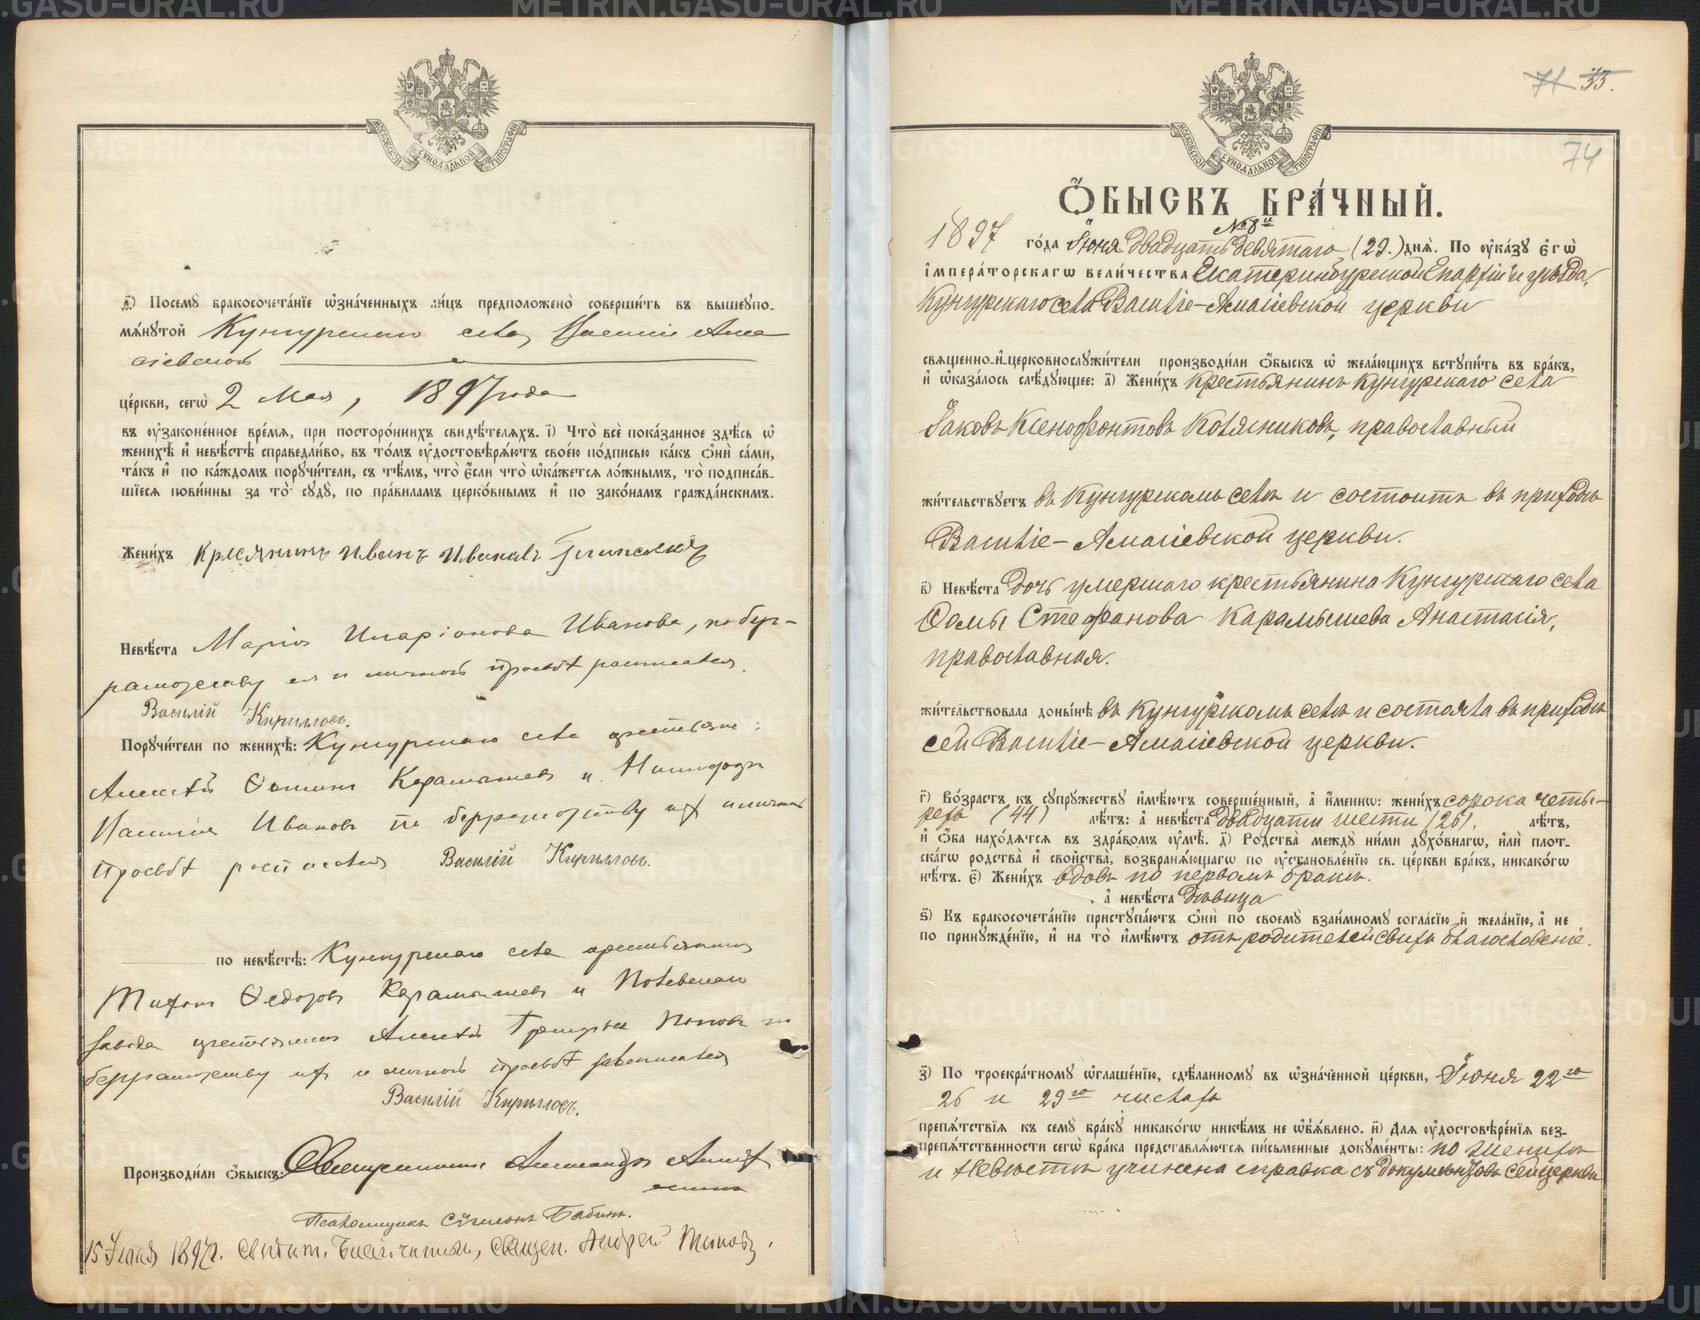 МОСКОВСКОЙ СѴНОДАЛЬНОЙ ТИПОГРАФІИ
д҃) Посемꙋ бракосочета́нїе ѡ҆зна́ченныхъ ли́цъ предположено̀ соверши́ть въ вышеꙋпо-
мѧ́нꙋтой Кунгурскаго села, Василіе Ама
сіевской
це́ркви, сегѡ̀ 2 Мая, 1897 года
въ ᲂу҆зако́ненное вре́мѧ, при посторо́ннихъ свидѣ́телѧхъ. і҃) Что̀ всѐ пока́занное здѣ́сь ѡ҆
женихѣ̀ и҆ невѣ́стѣ справедли́во, въ то́мъ ᲂу҆достовѣрѧ́ютъ свое́ю по́дписью ка́къ ѻ҆нѝ са́ми,
та́къ и҆ по ка́ждомъ порꙋчи́тели, съ тѣ́мъ, что̀ є҆́сли что̀ ѡ҆ка́жетсѧ ло́жнымъ, то̀ подписа́в-
шїесѧ пови́нны за то̀ сꙋдꙋ̀, по пра́виламъ церко́внымъ и҆ по зако́намъ гражда́нскимъ.
Жени́хъ Крисянинъ Иванъ Ивановъ
Невѣ́ста Марія Иларіонова Иванова, по безг-
рамотству ея и личной просьбѣ росписался
Василій Кирилловъ.
Порꙋчи́тели по женихѣ̀: Кунгурскаго села крестьяне:
Алексѣй Ѳоминъ Карамышевъ и Никифоръ
Иванов по безграмотству их и личной
просьбѣ росписался Василій Кирилловъ.
по невѣ́стѣ: Кунгурскаго села крестьянинъ
Тихонъ Ѳедоровъ Карамышевъ и Полевскаго
завода крестьянинъ Алексѣй Григорьев Попов по
безграмотству их и личной просьбѣ росписался
Василій Кирилловъ.
Производи́ли ѻ҆́быскъ: Священникъ Александръ
Псаломщикъ Сѵмеонъ Бабинъ.
15 1897 г. Благочинный, Священ. Андрей
МОСКОВСКОЙ СѴНОДАЛЬНОЙ ТИПОГРАФІИ
71 33.
74
Ѻ҆́БЫСКЪ БРА́ЧНЫЙ.
№ 8й
1897 го́да Іюня двадцать девятаго (29.) днѧ̀. По ᲂу҆ка́зꙋ є҆гѡ̀
і҆мпера́торскагѡ вели́чества Екатеринбургской Епархіи и уѣзда,
Кунгурскаго села Василіе-Амасіевской церкви
свѧще́нно-и҆-церковнослꙋжи́тели производи́ли ѻ҆́быскъ ѡ҆ жела́ющихъ встꙋпи́ть въ бра́къ,
и҆ ѡ҆каза́лось слѣ́дꙋющее: а҃) Жени́хъ крестьянинъ Кунгурскаго села
Іаковъ Ксенофонтовъ Котясниковъ, православный
жи́тельствꙋетъ въ Кунгурскомъ селѣ и состоитъ въ приходѣ
Василіе-Амасіевской церкви.
в҃) Невѣ́ста дочь умершаго крестьянина Кунгурскаго села
Ѳомы Стефанова Карамышева Анастасія,
православная.
жи́тельствовала доны́нѣ въ Кунгурскомъ селѣ и состояла въ приходѣ
сей Василіе-Амасіевской церкви.
г҃) Во́зрастъ къ сꙋпрꙋ́жествꙋ и҆мѣ́ютъ соверше́нный, а҆ и҆́меннѡ: жени́хъ сорока четы-
рехъ (44) лѣ́тъ: а҆ невѣ́ста двадцати шести (26). лѣ́тъ,
и҆ ѻ҆́ба нахо́дѧтсѧ въ здра́вомъ ᲂу҆мѣ̀. д҃) Родства̀ междꙋ̀ ни́ми дꙋхо́внагѡ, и҆лѝ плот-
ска́гѡ родства̀ и҆ сво́йства, возбранѧ́ющагѡ по ᲂу҆становле́нїю св. це́ркви бра́къ, никако́гѡ
нѣ́тъ. є҃) Жени́хъ вдовъ по первомъ бракѣ.
, а҆ невѣ́ста дѣвица
ѕ҃) Къ бракосочета́нїю пристꙋпа́ютъ ѻ҆нѝ по своемꙋ̀ взаи́мномꙋ согла́сїю и҆ жела́нїю, а҆ не
по принꙋжде́нїю, и҆ на то̀ и҆мѣ́ютъ отъ родителей своихъ благословеніе.
з҃) По троекра́тномꙋ ѡ҆глаше́нїю, сдѣ́ланномꙋ въ ѡ҆зна́ченной це́ркви, Іюня 22го
26 и 29го числахъ
препѧ́тствїѧ къ семꙋ̀ бра́кꙋ никако́гѡ никѣ́мъ не ѡ҆б̾ѧ́влено. и҃) Для ᲂу҆достовѣре́нїѧ без-
препѧ́тственности сегѡ̀ бра́ка представлѧ́ютсѧ пи́сьменные докꙋме́нты: по женихѣ
и невѣстѣ учинена справка съ документовъ сей церкви
METRIKI.GASU-URAL.RU